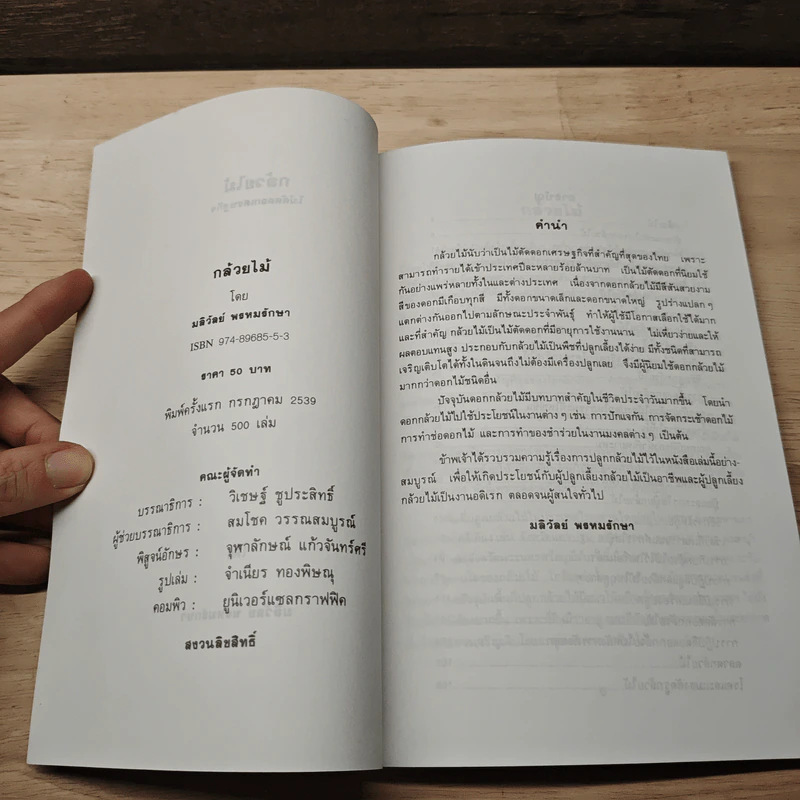 กล้วยไม้
โดย
มลิวัลย์ พรหมรักษา
ISBN 974-89685-5-3
ราคา 50 บาท
พิมพ์ครั้งแรก กรกฎาคม 2539
จำนวน 500 เล่ม
คณะผู้จัดทำ
บรรณาธิการ : วิเชษฐ์ ชูประสิทธิ์
ผู้ช่วยบรรณาธิการ : สมโชค วรรณสมบูรณ์
พิสูจน์อักษร : จุฬาลักษณ์ แก้วจันทร์ศรี
รูปเล่ม : จำเนียร ทองพิษณุ
คอมพิว : ยูนิเวอร์แซลกราฟฟิค
สงวนลิขสิทธิ์
คำนำ
กล้วยไม้นับว่าเป็นไม้ตัดดอกเศรษฐกิจที่สำคัญที่สุดของไทย เพราะ
สามารถทำรายได้เข้าประเทศปีละหลายร้อยล้านบาท เป็นไม้ตัดดอกที่นิยมใช้
กันอย่างแพร่หลายทั้งในและต่างประเทศ เนื่องจากดอกกล้วยไม้มีสีสันสวยงาม
สีของดอกมีเกือบทุกสี มีทั้งดอกขนาดเล็กและดอกขนาดใหญ่ รูปร่างแปลก ๆ
แตกต่างกันออกไปตามลักษณะประจำพันธุ์ ทำให้ผู้ใช้มีโอกาสเลือกใช้ได้มาก
และที่สำคัญ กล้วยไม้เป็นไม้ตัดดอกที่มีอายุการใช้งานนาน ไม่เหี่ยวง่ายและให้
ผลตอบแทนสูง ประกอบกับกล้วยไม้เป็นพืชที่ปลูกเลี้ยงได้ง่าย มีทั้งชนิดที่สามารถ
เจริญเติบโตได้ทั้งในดินจนถึงไม่ต้องมีเครื่องปลูกเลย จึงมีผู้นิยมใช้ดอกกล้วยไม้
มากกว่าดอกไม้ชนิดอื่น
ปัจจุบันดอกกล้วยไม้มีบทบาทสำคัญในชีวิตประจำวันมากขึ้น โดยนำ
ดอกกล้วยไม้ไปใช้ประโยชน์ในงานต่าง ๆ เช่น การปักแจกัน การจัดกระเช้าดอกไม้
การทำช่อดอกไม้ และการทำของชำร่วยในงานมงคลต่าง ๆ เป็นต้น
ข้าพเจ้าได้รวบรวมความรู้เรื่องการปลูกกล้วยไม้ไว้ในหนังสือเล่มนี้อย่าง-
สมบูรณ์ เพื่อให้เกิดประโยชน์กับผู้ปลูกเลี้ยงกล้วยไม้เป็นอาชีพและผู้ปลูกเลี้ยง
กล้วยไม้เป็นงานอดิเรก ตลอดจนผู้สนใจทั่วไป
มลิวัลย์ พรหมรักษา